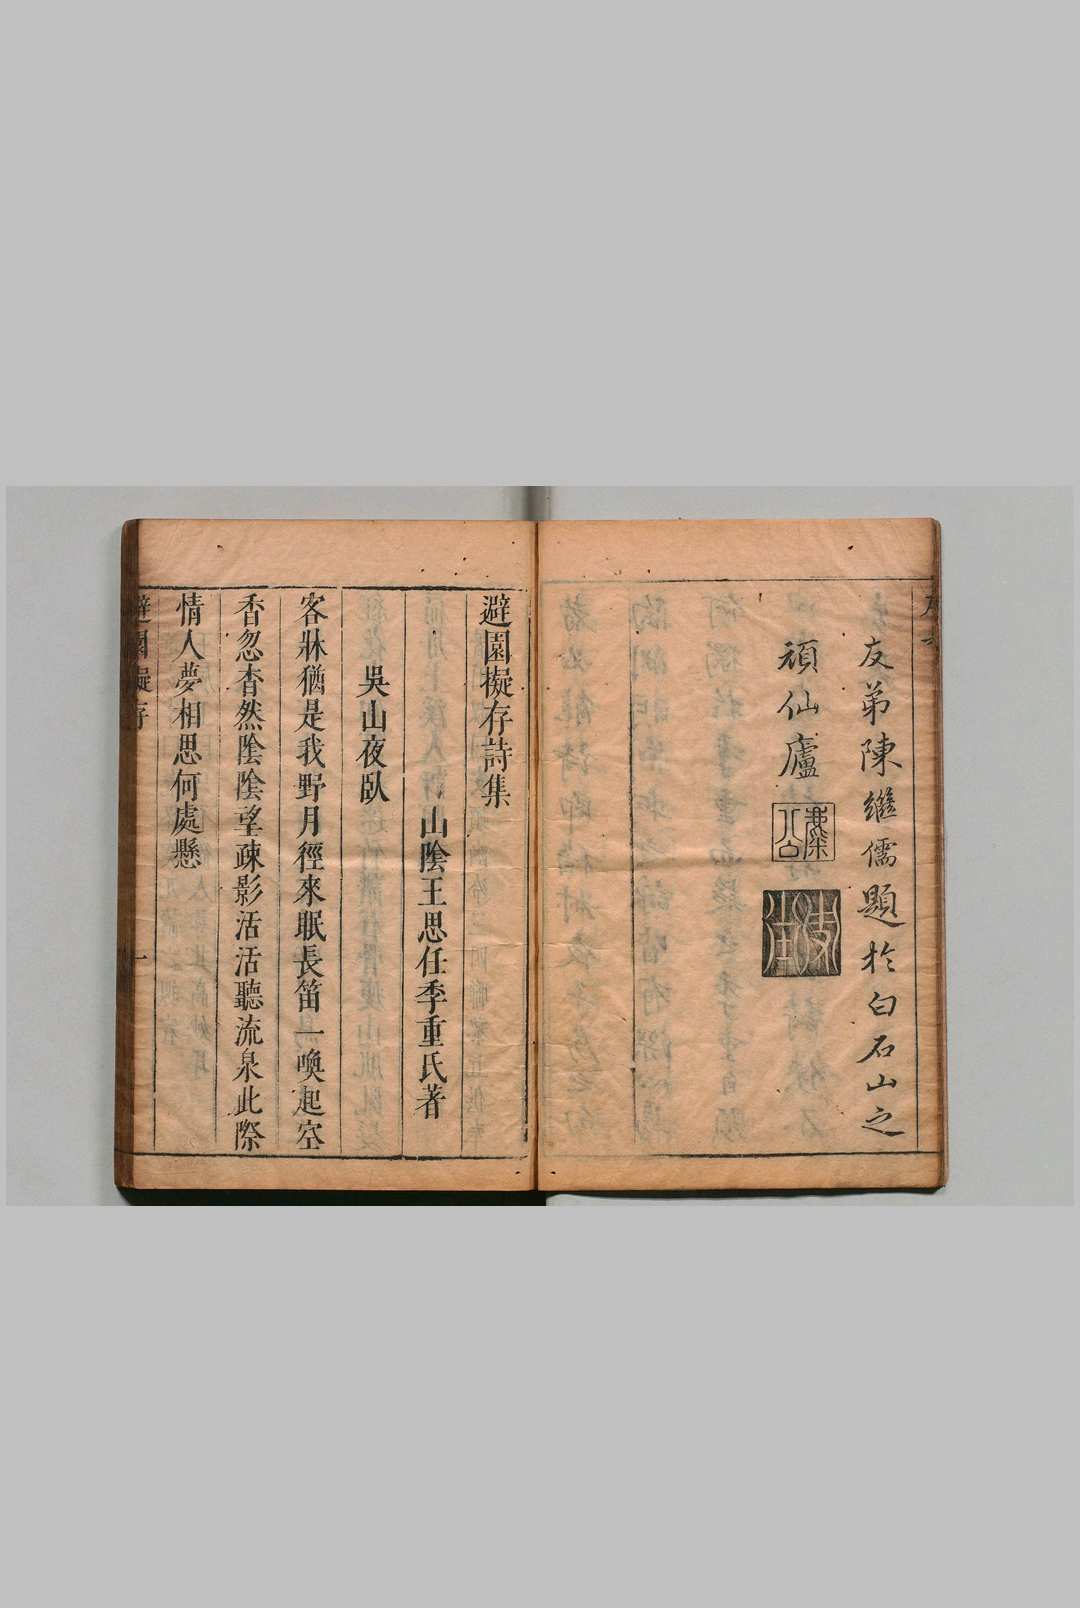 友弟陳繼儒題於白石山之
頑仙廬
避園擬存詩集
山陰王思任季重氏著
吳山夜臥
客牀猶是我野月徑來眠長笛一喚起空
香忽杳然陰陰望疎影活活聽流泉此際
情人夢相思何處懸
避園擬存
一